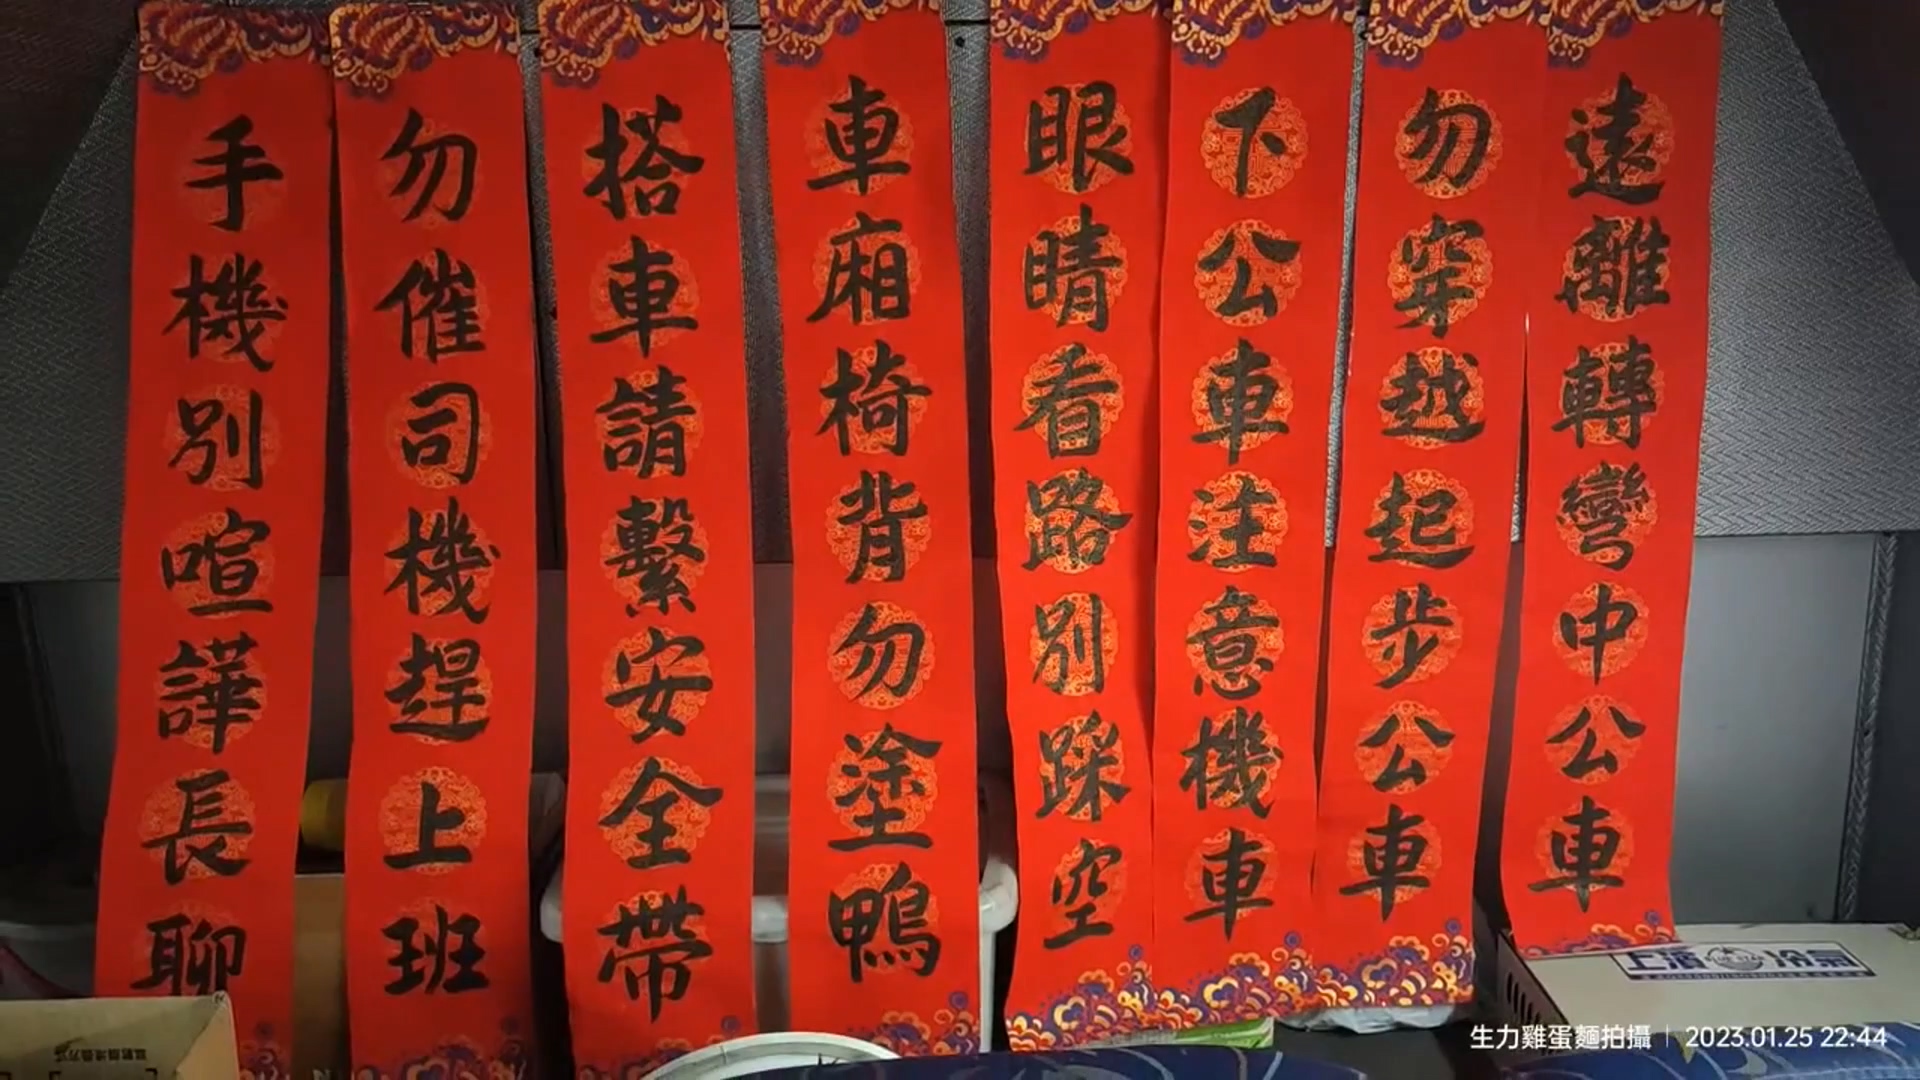 遠離轉彎中公車
勿穿越起步公車
下公車注意機車
眼睛看路別踩空
車廂椅背勿塗鴨
搭車請繫安全帶
勿催司機趕上班
手機別喧譁長聊
冷氣
生力雞蛋麵拍攝 | 2023.01.25 22:44